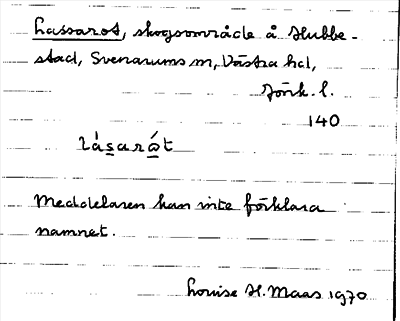 Lassarot, skogsområde å Hubbe-
stad, Svenarums sn, Västra hd,
Jönk. l.
140
làsarót
Meddelaren kan inte förklara
namnet.
Louise H. Maas 1970